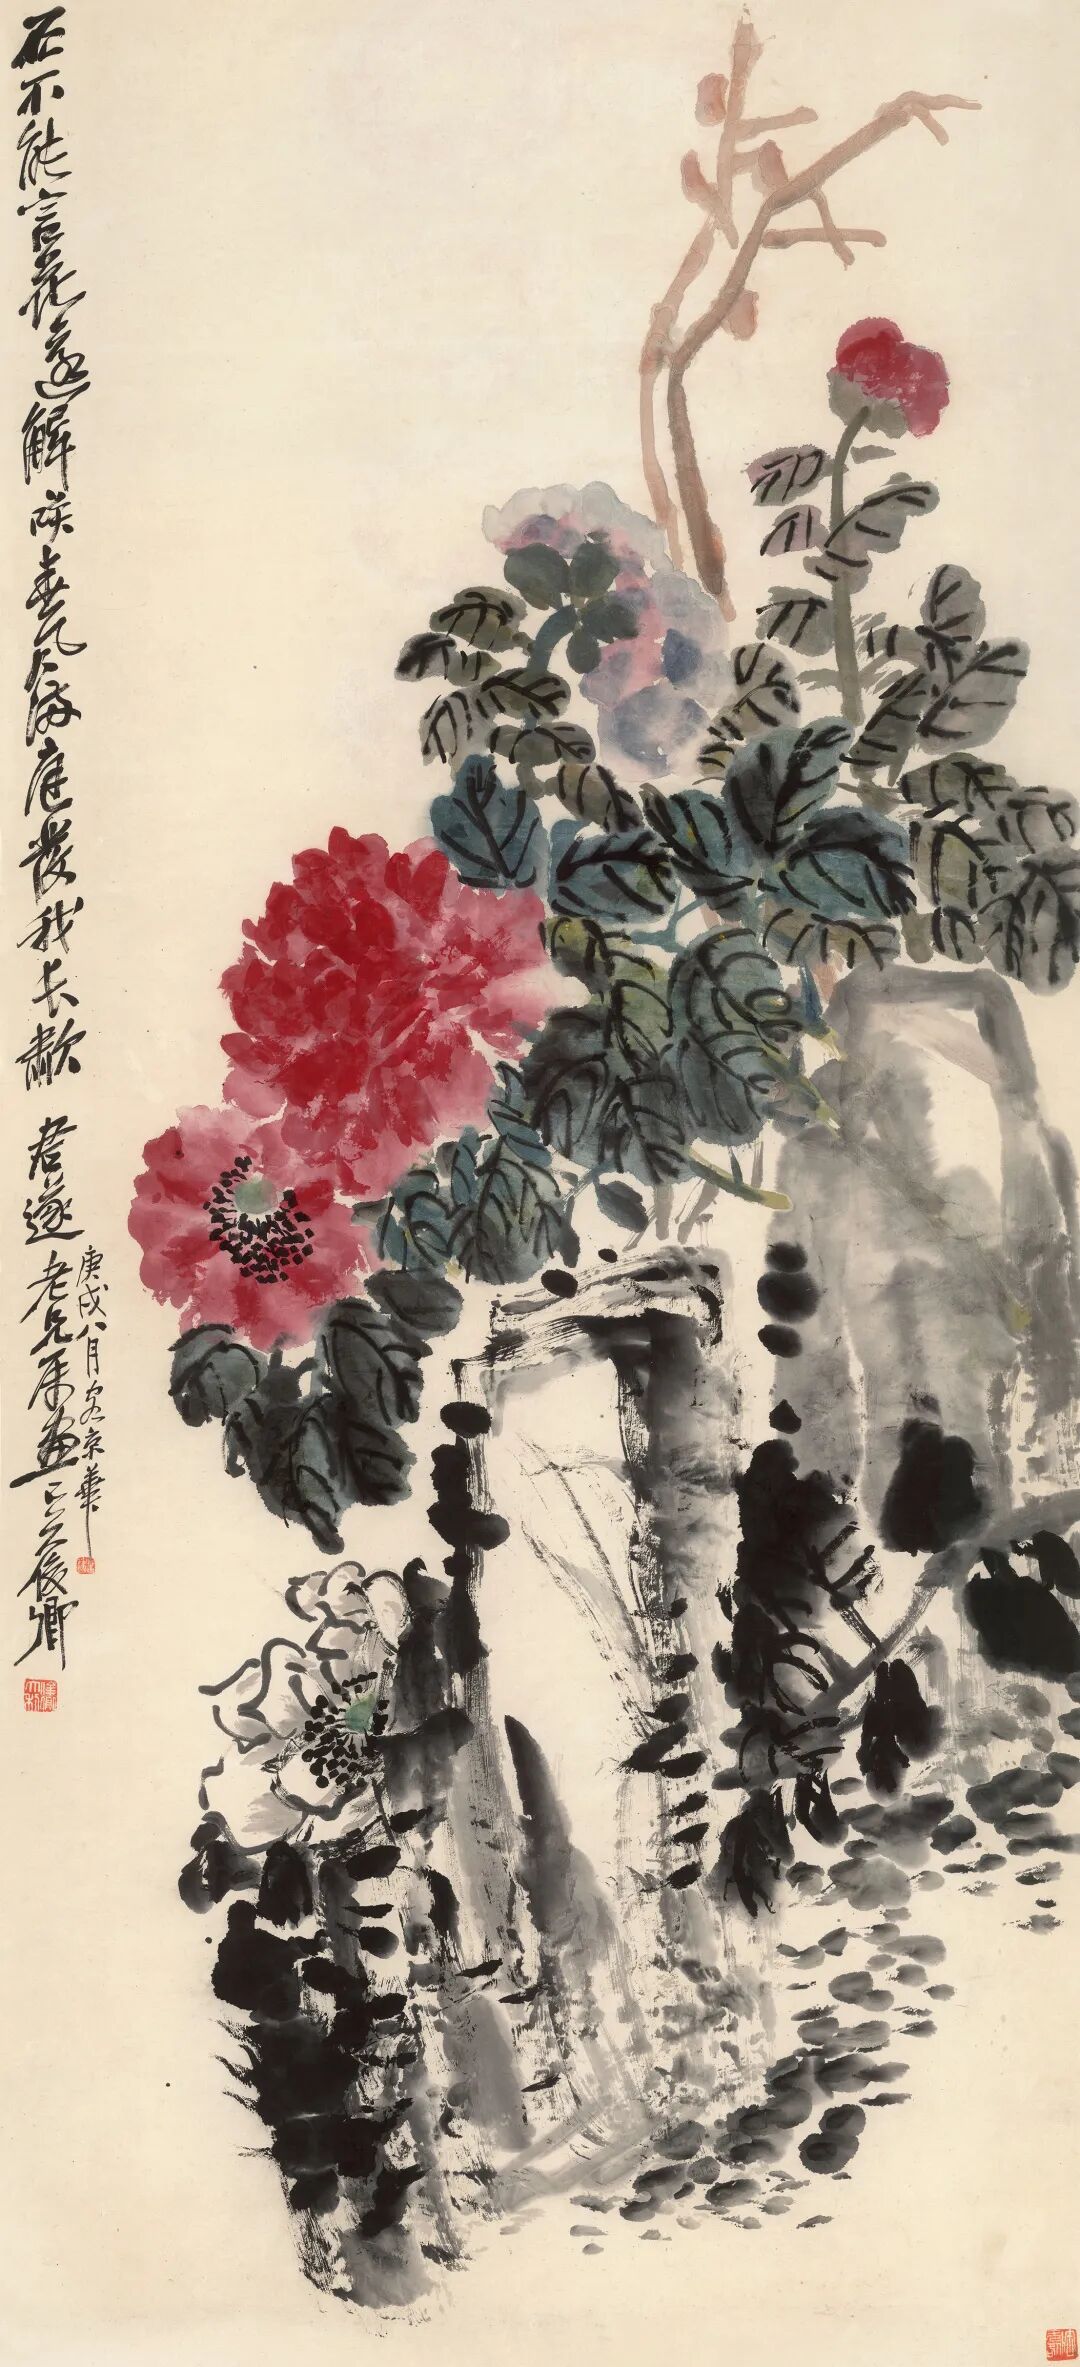 石不能言花還解咲春風滿庭發我長歗
君遂老兄屬畫吳俊卿
庚戌八月客京華